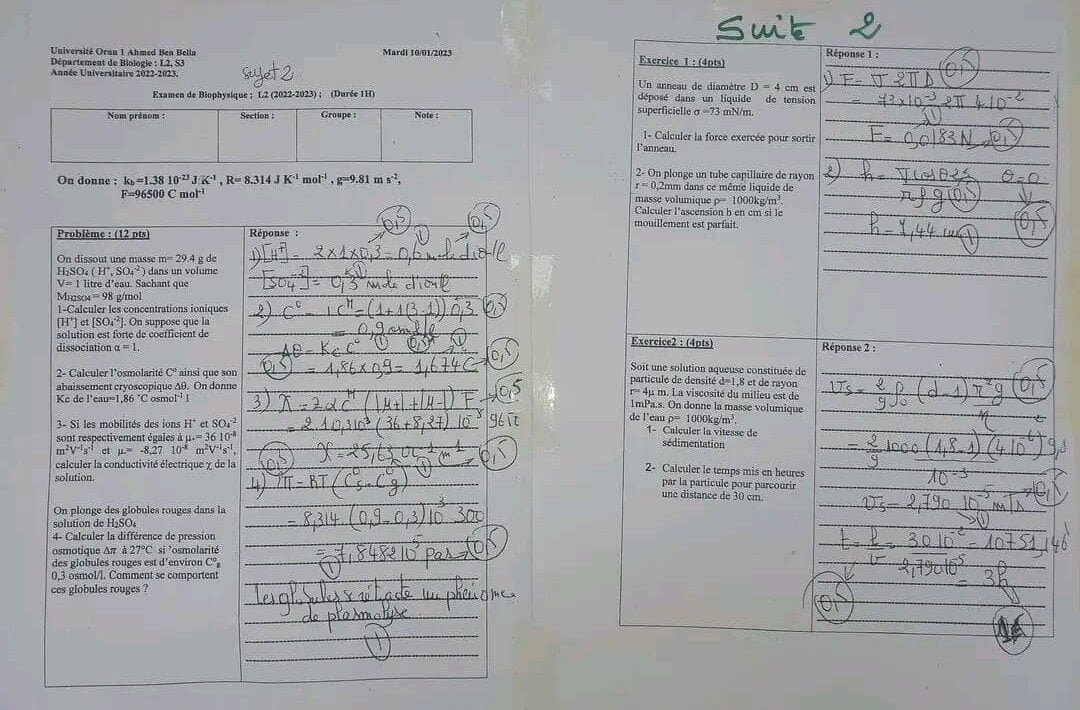 Suite 2
Université Oran 1 Ahmed Ben Bella
Mardi 10/01/2023
Département de Biologie : L2, S3
Année Universitaire 2022-2023.
sujet 2
Examen de Biophysique ; L2 (2022-2023) ; (Durée 1H)
Nom prénom : Section : Groupe : Note :
On donne : kb =1.38 10⁻²³ J K⁻¹ , R= 8.314 J K⁻¹ mol⁻¹ , g=9.81 m s⁻²,
F=96500 C mol⁻¹
Problème : (12 pts)
On dissout une masse m= 29.4 g de
H₂SO₄ ( H⁺, SO₄⁻² ) dans un volume
V= 1 litre d'eau. Sachant que
MH2SO4 = 98 g/mol
1-Calculer les concentrations ioniques
[H⁺] et [SO₄⁻²]. On suppose que la
solution est forte de coefficient de
dissociation α = 1.
2- Calculer l'osmolarité C° ainsi que son
abaissement cryoscopique Δθ. On donne
Kc de l'eau=1,86 °C osmol⁻¹ l
3- Si les mobilités des ions H⁺ et SO₄⁻²
sont respectivement égales à μ₊= 36 10⁻⁸
m²V⁻¹s⁻¹ et μ₋= -8,27 10⁻⁸ m²V⁻¹s⁻¹,
calculer la conductivité électrique χ de la
solution.
On plonge des globules rouges dans la
solution de H₂SO₄
4- Calculer la différence de pression
osmotique Δπ à 27°C si 'osmolarité
des globules rouges est d'environ C°g
0,3 osmol/l. Comment se comportent
ces globules rouges ?
Réponse :
0,5 0,5
1) [H⁺] = 2x1x0,3 = 0,6 mole d'ion/l
1
[SO₄⁻²] = 0,3 mole d'ion/l
1
2) C° = i Cᴹ = (1+1(3-1)) 0,3 0,5
= 0,9 osmol/l
1 0,5 1
Δθ = Kc C°
0,5 = 1,86 x 0,9 = 1,674°C 0,5
3) χ = Z α Cᴹ (|μ+| + |μ-|) F 0,5
= 2 1 0,3 10³ (36+8,27) 10⁻⁸
0,5 χ = 25,63 Ω⁻¹ m⁻¹ 0,5
1
4) π = RT (C°s - C°g)
= 8,314 (0,9-0,3) 10³ 300
= 7,8482 10⁵ pas 0,5
1
les globules
de plasmolyse
1
Exercice 1 : (4pts)
Un anneau de diamètre D = 4 cm est
déposé dans un liquide de tension
superficielle σ =73 mN/m.
1- Calculer la force exercée pour sortir
l'anneau.
2- On plonge un tube capillaire de rayon
r = 0,2mm dans ce même liquide de
masse volumique ρ= 1000kg/m³.
Calculer l'ascension h en cm si le
mouillement est parfait.
Réponse 1 :
1) F = σ 2 π D 0,5
= 73x10⁻³ 2π 4 10⁻²
1
F = 0,0183 N 0,5
2) h = σ cosθ 2 θ=0
r ρ g 0,5 0,5
h = 7,44 cm 1
Exercice2 : (4pts)
Soit une solution aqueuse constituée de
particule de densité d=1,8 et de rayon
r= 4μ m. La viscosité du milieu est de
1mPa.s. On donne la masse volumique
de l'eau ρ= 1000kg/m³.
1- Calculer la vitesse de
sédimentation
2- Calculer le temps mis en heures
par la particule pour parcourir
une distance de 30 cm.
Réponse 2 :
Vs = 2/9 ρ₀ (d-1) r² g / η 0,5
= 2/9 1000 (1,8-1) (4 10⁻⁶)²
10⁻³
Vs = 2,790 10⁻⁵ m/s 0,5
1
t = h/v = 30 10⁻² / 2,790 10⁻⁵ = 10751,
= 3h
0,5